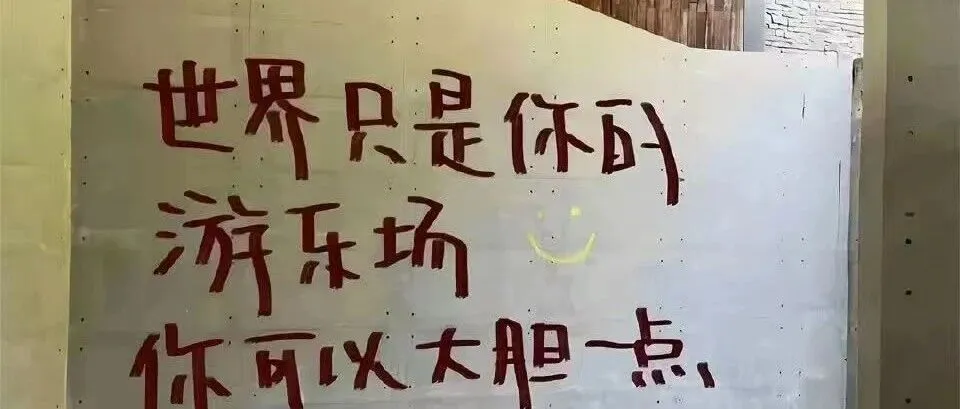 世界只是你的
游乐场
你可以大胆一点